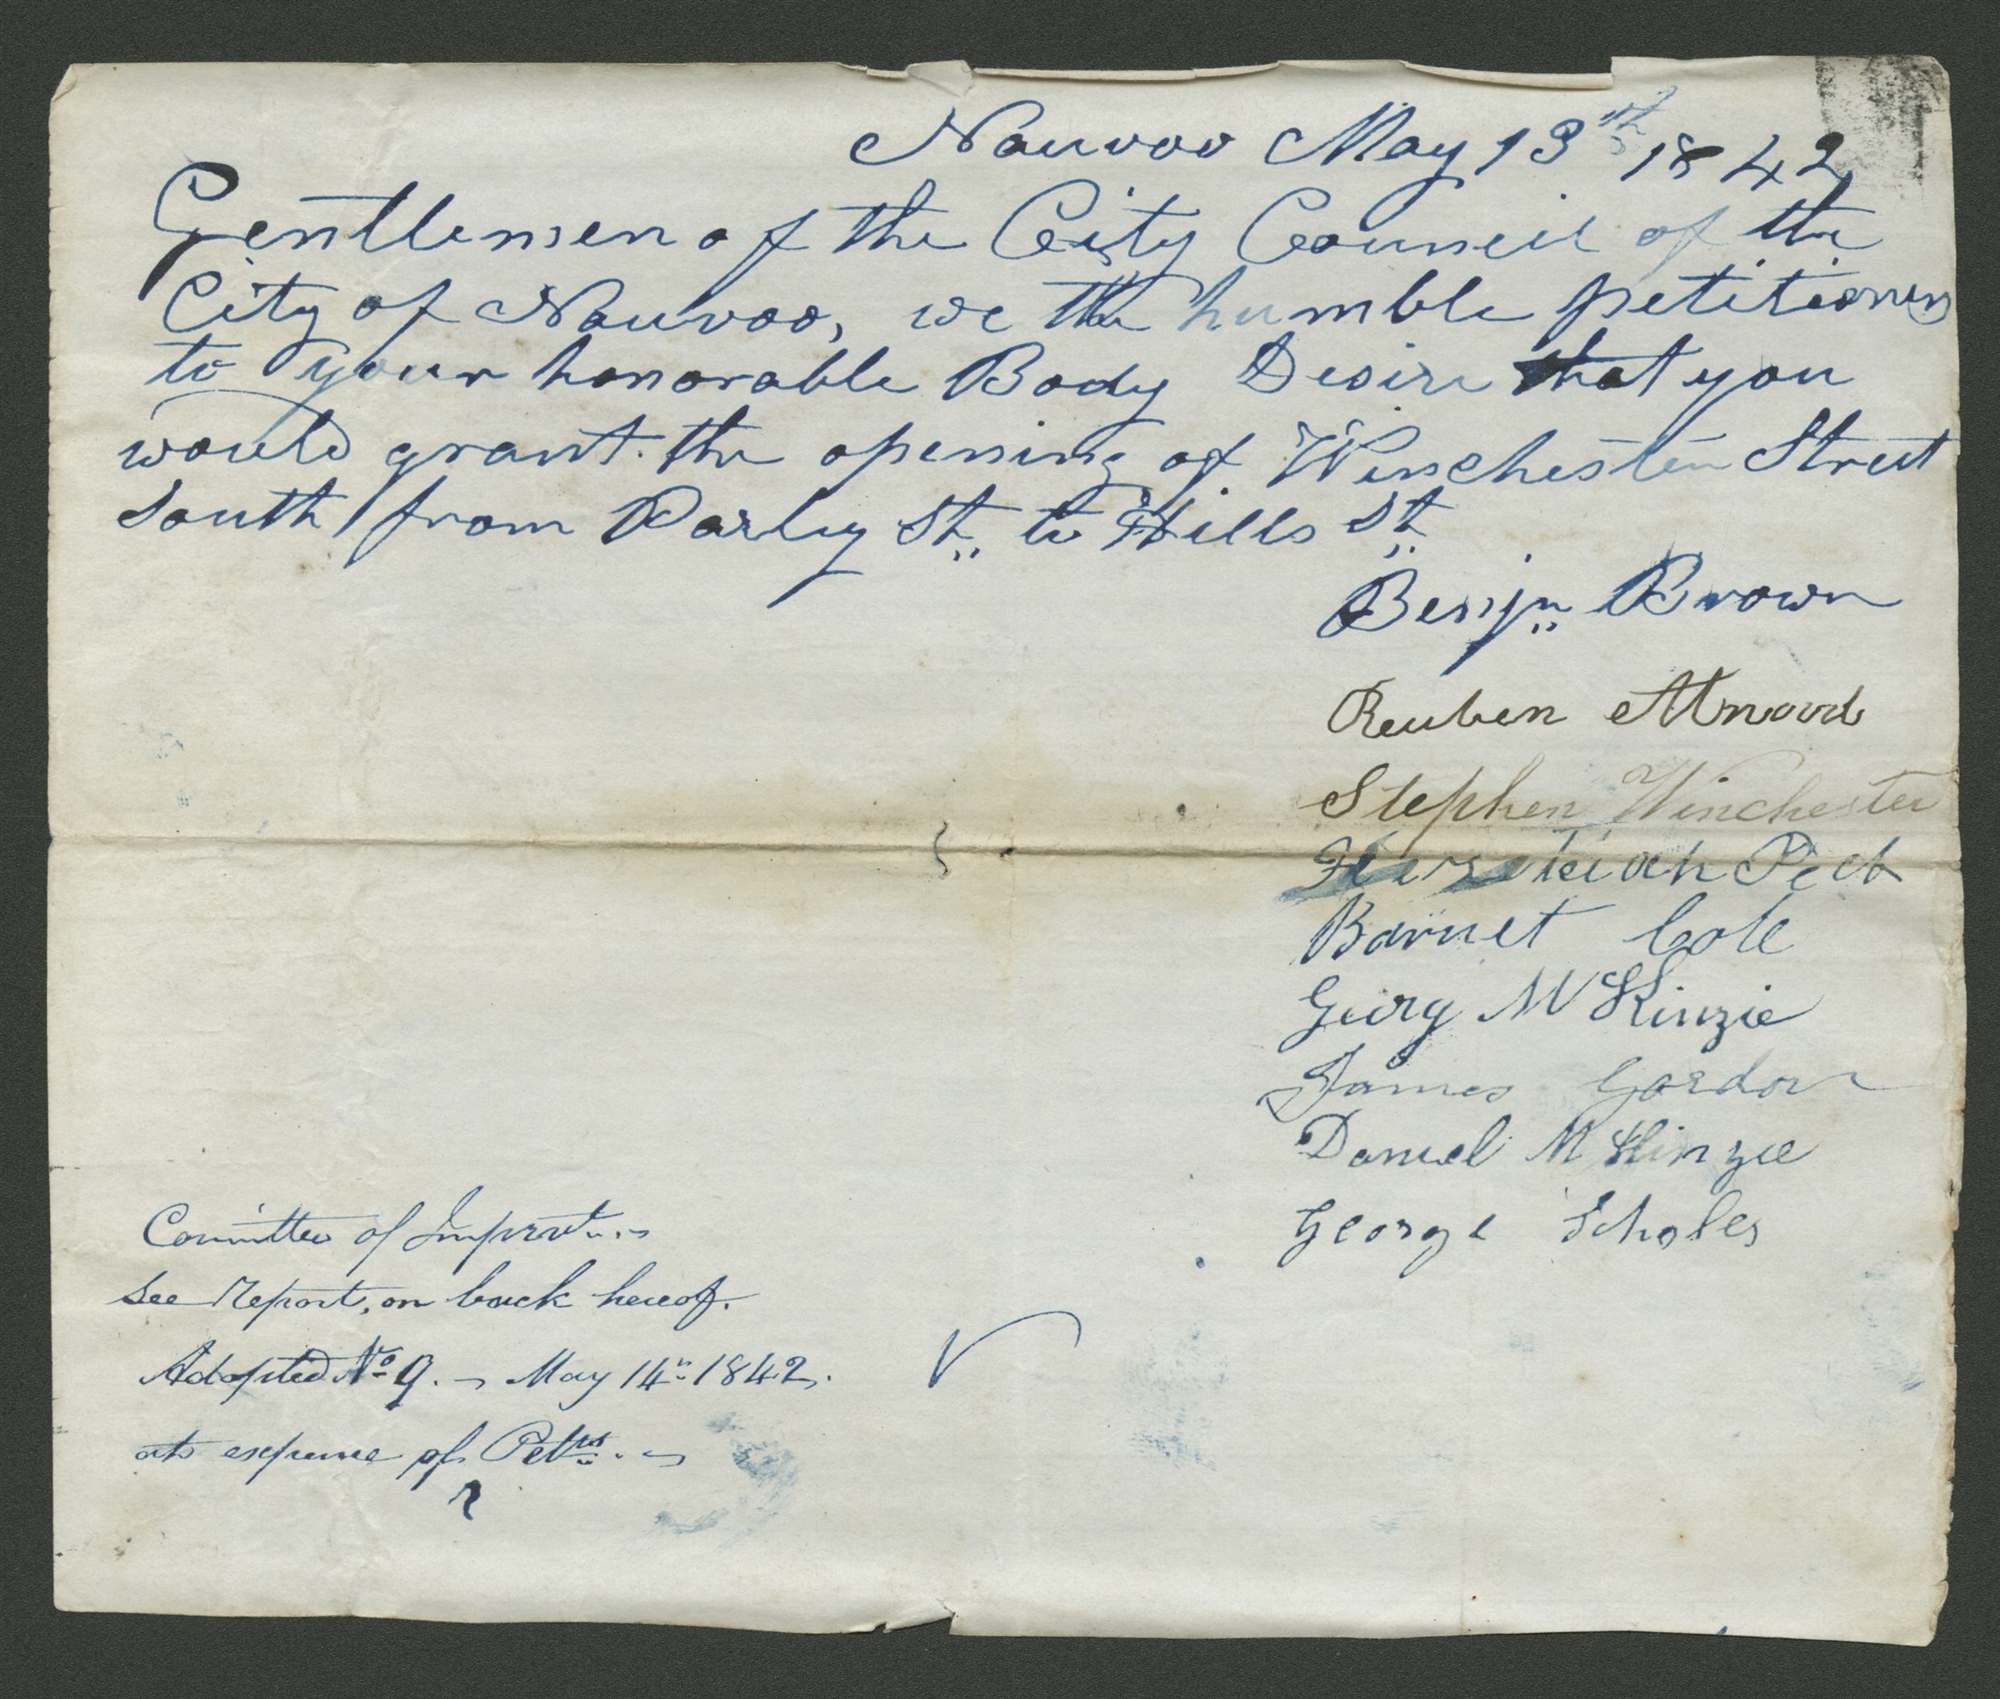 Nauvoo May 13th 1842
Gentlemen of the City Council of the
City of Nauvoo, we the humble petitioners
to your honorable Body Desire that you
would grant the opening of Winchester Street
South from Parley St. to Hills St.
Benjn. Brown
Reuben Atwood
Stephen Winchester
Hezekiah Peck
Barnet Cole
Georg Mc Kinzie
James Gordon
Daniel Mc Kinzie
George Scholes
Committee of Improvt..
See Report, on back hereof.
Adopted No 9. — May 14th 1842.
at expense of Petrs. —